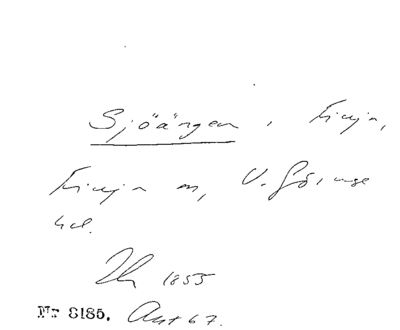 Sjöängen, Finja,
Finja sn, V. Göinge
hd.
1855
Nr 8185. Ant 67.